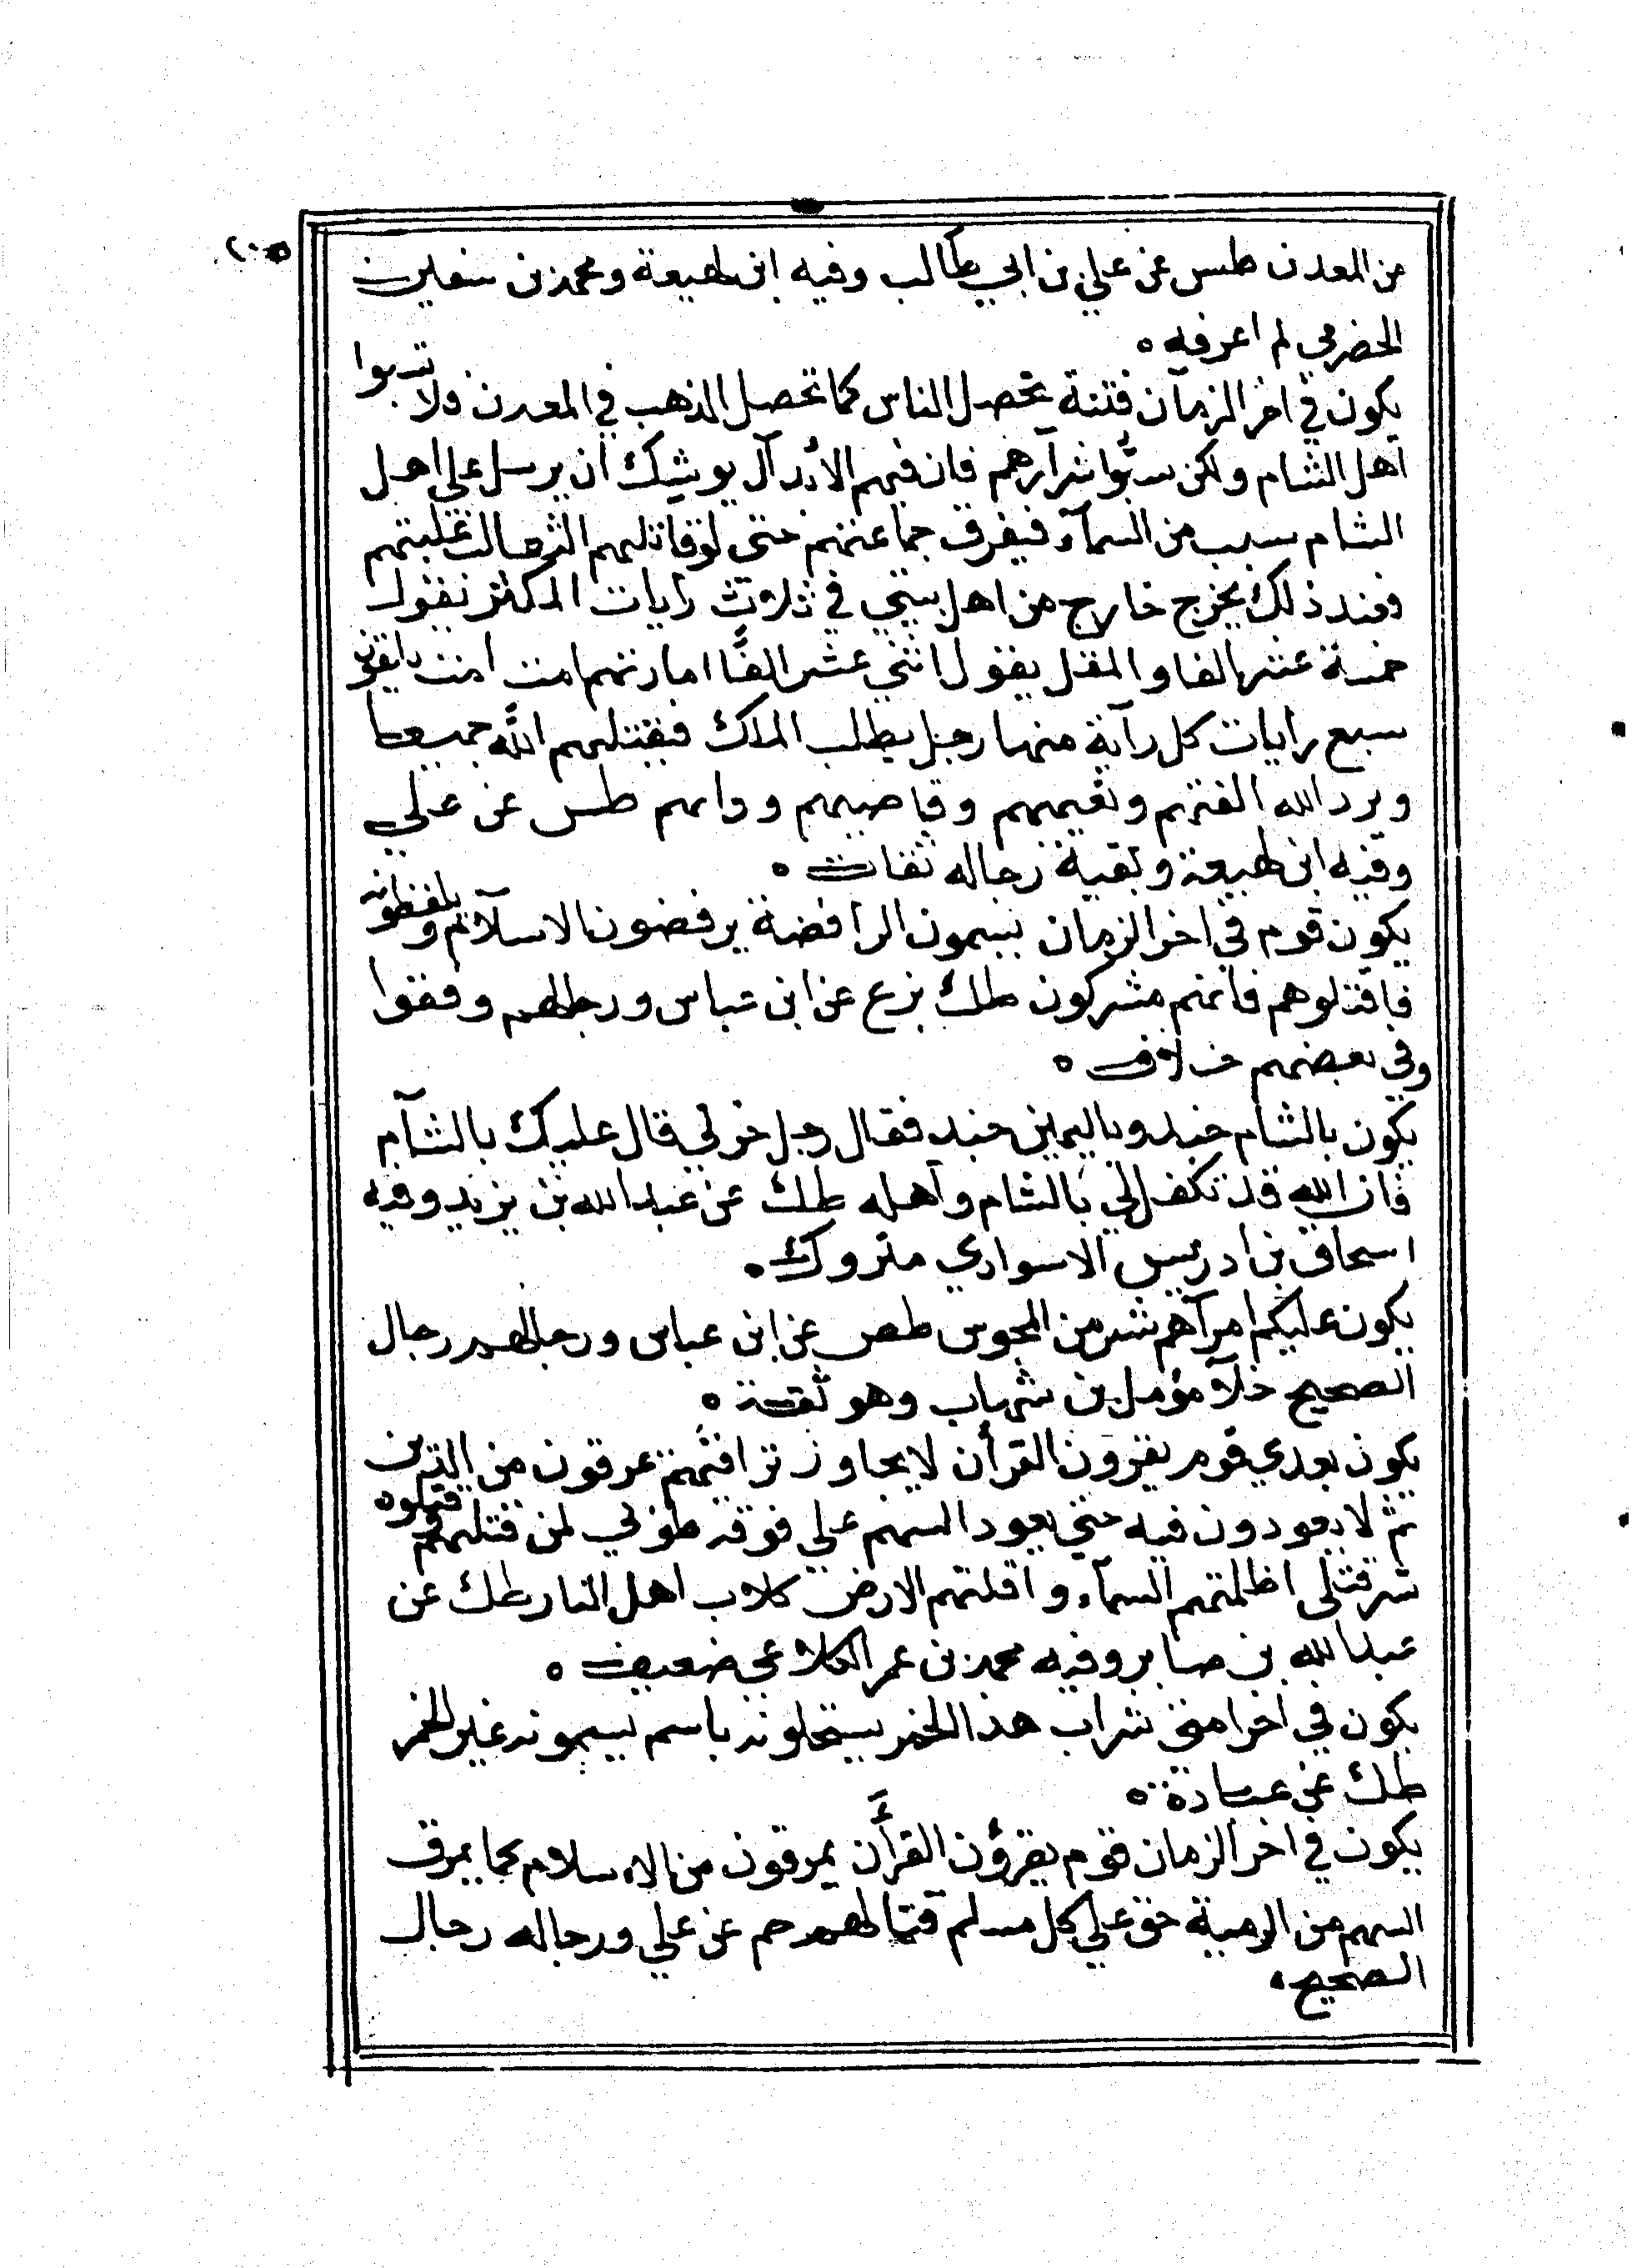 من المعدن طس عن علي بن ابي طالب وفيه ابن لهيعة ومحمد بن سفين
الحضرمي لم اعرفه ه
يكون في اخر الزمان فتنة تحصل الناس كما تحصل الذهب في المعدن ولا تسبوا
اهل الشام ولكن سبوا شرارهم فان فيهم الابدال يوشك ان يرسل علي اهل
الشام سبب من السماء فيفرق جماعتهم حتى لو قاتلهم الثعالب غلبتهم
فعند ذلك يخرج خارج من اهل بيتي في ثلاث رايات المكثر يقول
خمسة عشر الفا والمقل يقول اثني عشر الفًا امارتهم امت امت يلقون
سبع رايات كل راية منها رجل يطلب الملك فيقتلهم الله جميعا
ويرد الله الفتهم ونعيمهم وقاصيهم ودانيهم طس عن علي
وفيه ابن لهيعة وبقية رجاله ثقات ه
يكون قوم في اخر الزمان يسمون الرافضة يرفضون الاسلام ويلفظونه
فاقتلوهم فانهم مشركون طك بز ع عن ابن عباس ورجالهم وفقوا
وفي بعضهم خلاف ه
يكون بالشام جند وباليمين جند فقال رجل خر لي قال عليك بالشام
فان الله قد تكفل لي بالشام واهله طك عن عبد الله بن يزيد وفيه
اسحاق بن ادريس الاسواري متروك ه
يكون عليكم امراهم شر من المجوس طص عن ابن عباس ورجالهم رجال
الصحيح خلا مؤمل بن شهاب وهو ثقة ه
يكون بعدي قوم يقرون القرأن لا يجاوز تراقيهم يمرقون من الدين
ثم لا يعودون فيه حتي يعود السهم علي فوقه طوبي لمن قتلهم وقتلوه
شر قتلى اظلتهم السماء واقلتهم الارض كلاب اهل النار طك عن
عبد الله بن صابر وفيه محمد بن عمر الكلاعي ضعيف ه
يكون في اخر امتي شراب هذا الخمر يستحلونه باسم يسمونه غير الخمر
طك عن عبادة ه
يكون في اخر الزمان قوم يقرؤن القرأن يمرقون من الاسلام كما يمرق
السهم من الرمية حق علي كل مسلم قتالهم حم عن علي ورجاله رجال
الصحيح ه